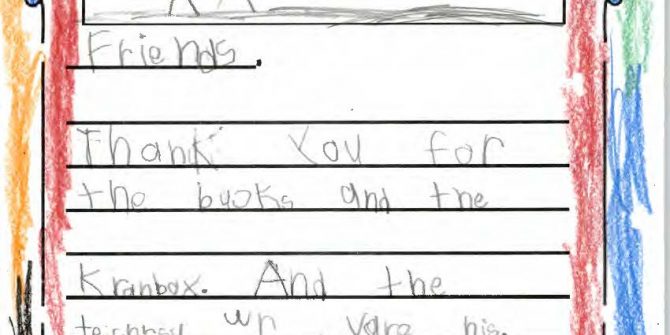 Friends.
Thank You for
the books and the
Kranbox. And the
vare his.